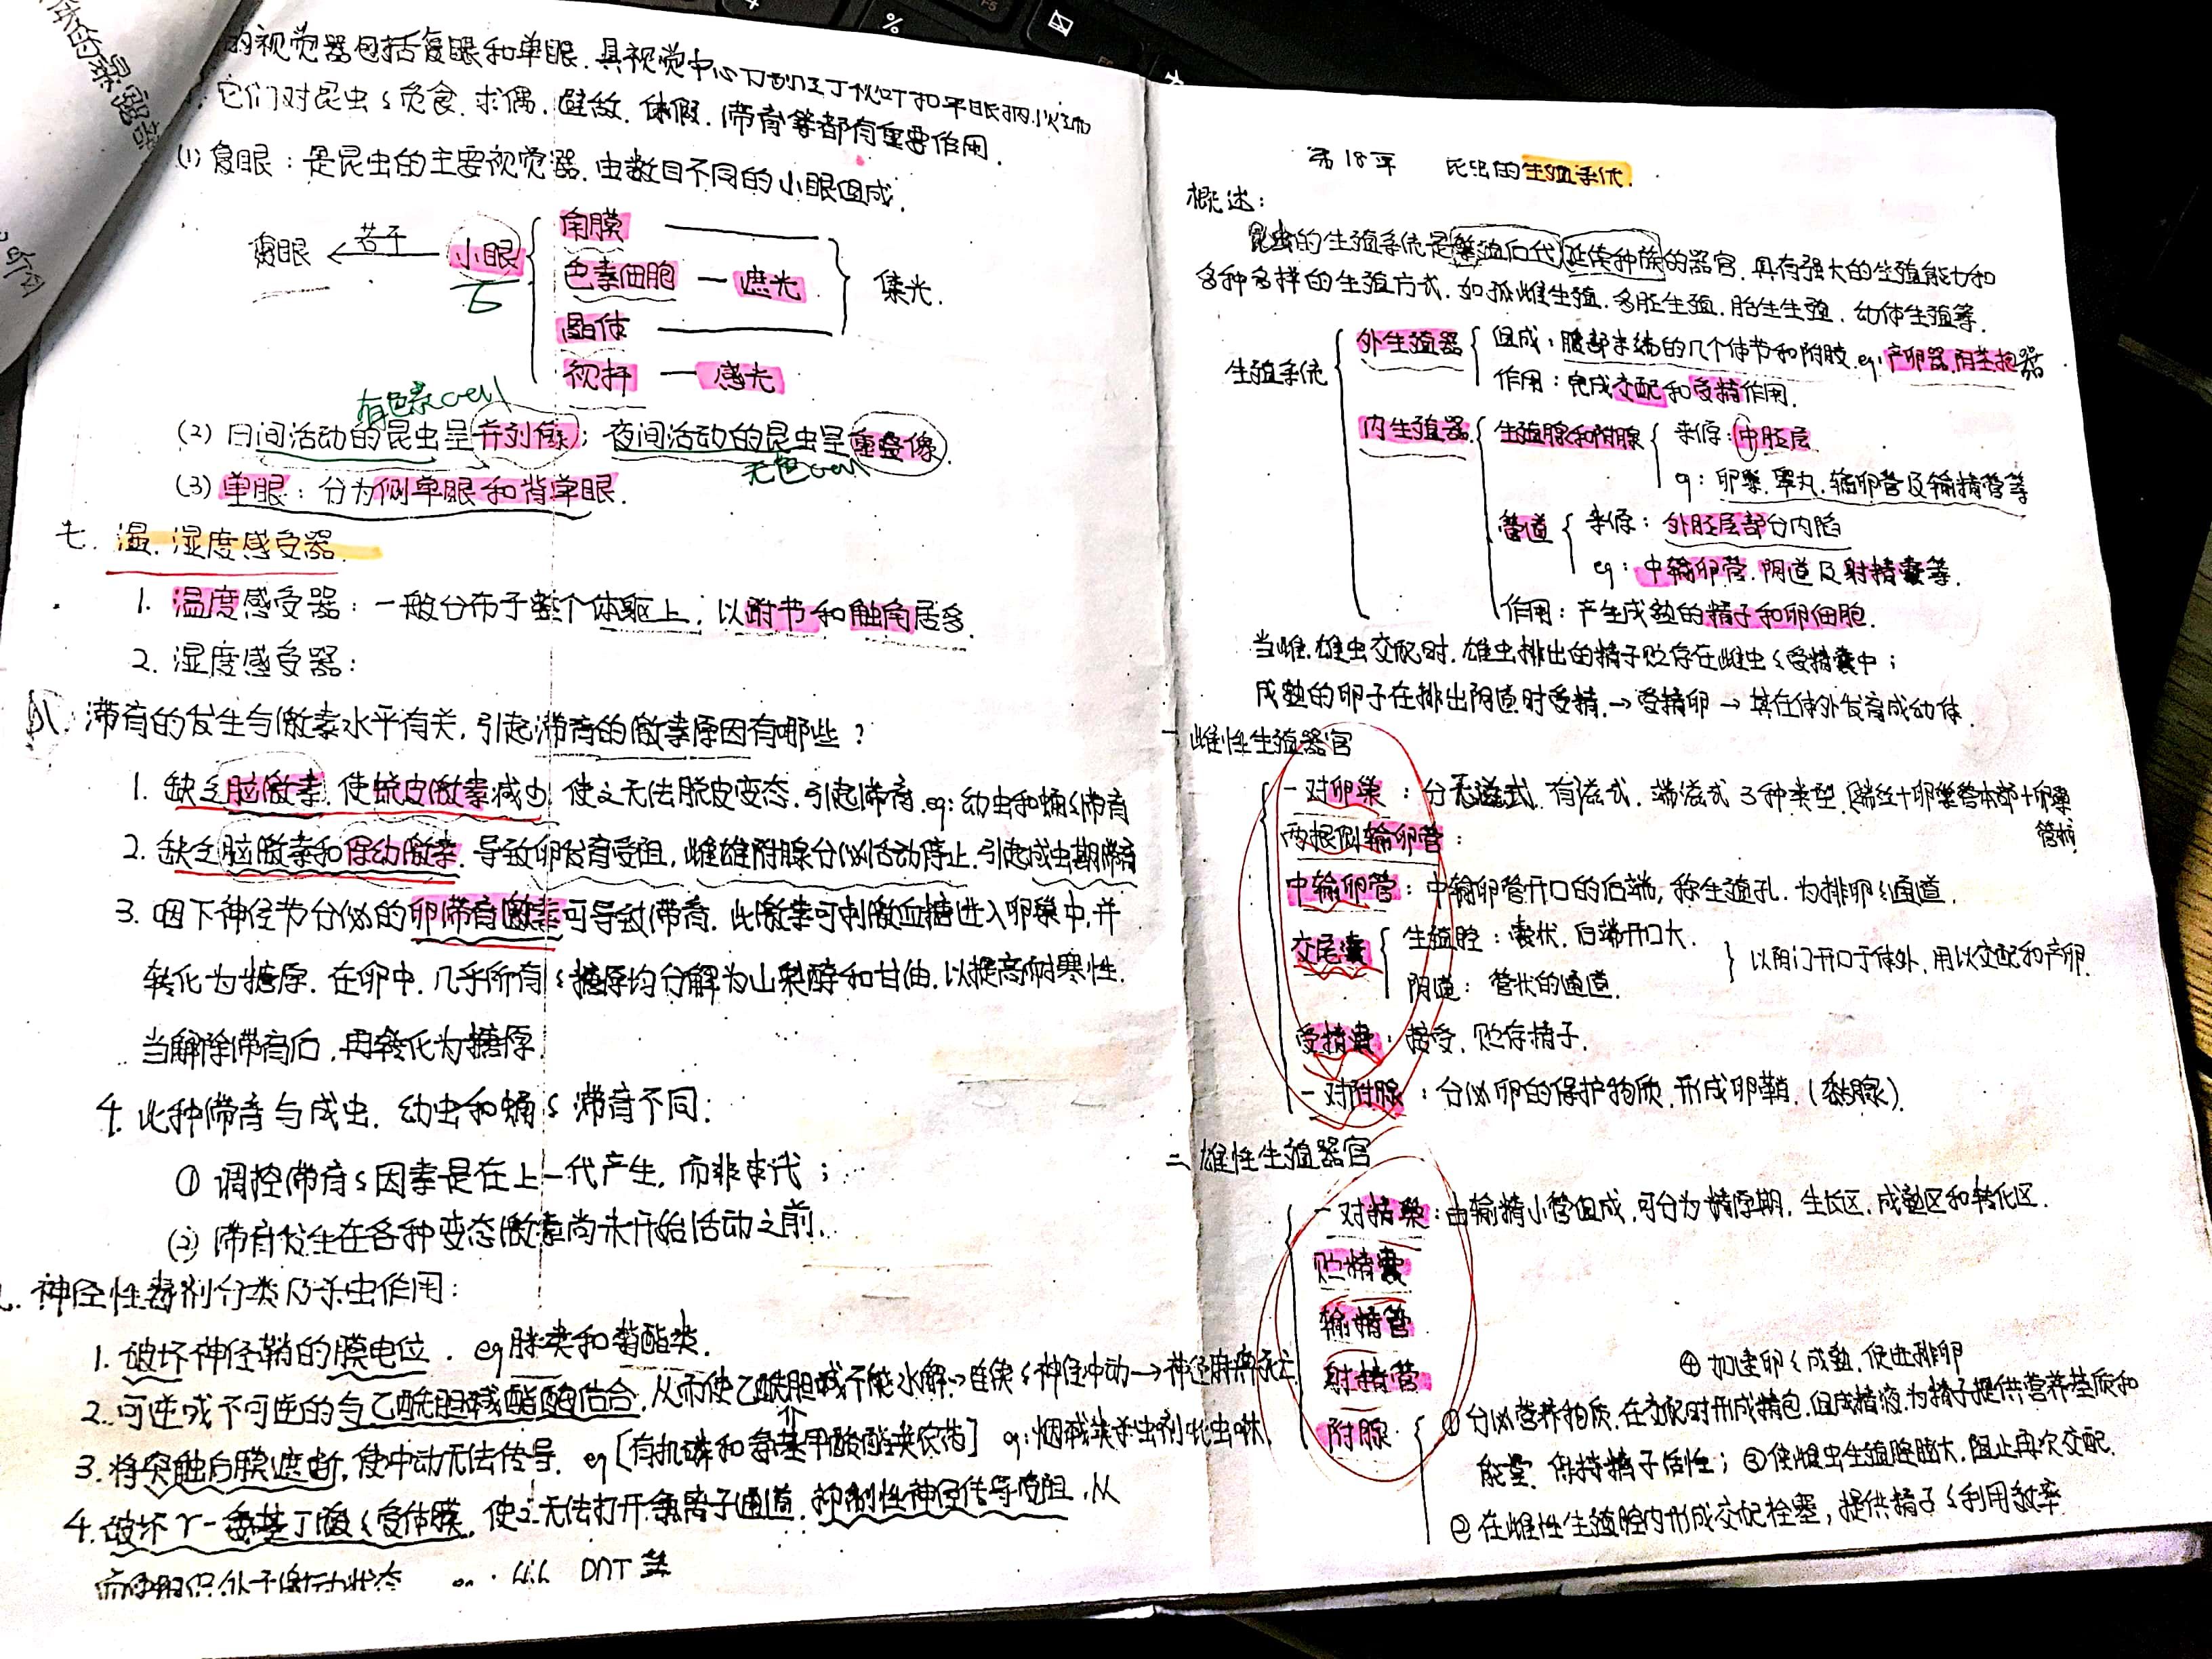 的视觉器包括复眼和单眼.具视觉中心
它们对昆虫的觅食.求偶.避敌.休眠.滞育等都有重要作用.
(1)复眼:是昆虫的主要视觉器.由数目不同的小眼组成.
复眼 ← 若干 小眼
角膜
色素细胞 — 遮光
晶体
集光.
视杆 — 感光
有色素cell
(2)日间活动的昆虫呈并列像;夜间活动的昆虫呈重叠像.
无色cell
(3)单眼:分为侧单眼和背单眼.
七.温.湿度感受器.
1.温度感受器:一般分布于整个体躯上,以跗节和触角居多.
2.湿度感受器:
八.滞育的发生与激素水平有关,引起滞育的激素原因有哪些?
1.缺乏脑激素.使蜕皮激素减少.使之无法脱皮变态.引起滞育.eg:幼虫和蛹的滞育
2.缺乏脑激素和保幼激素.导致卵发育受阻,雌雄附腺分泌活动停止.引起成虫期滞育
3.咽下神经节分泌的卵滞育激素可导致滞育.此激素可刺激血糖进入卵巢中,并
转化为糖原.在卵中.几乎所有的糖原均分解为山梨醇和甘油.以提高耐寒性.
当解除滞育后,再转化为糖原.
4.此种滞育与成虫.幼虫和蛹的滞育不同:
①调控滞育的因素是在上一代产生,而非本代;
(2)滞育发生在各种变态激素尚未开始活动之前.
神经性毒剂分类及杀虫作用:
1.破坏神经鞘的膜电位.eg胺类和菊酯类.
2.可逆或不可逆的与乙酰胆碱酯酶结合,从而使乙酰胆碱不能水解→连续的神经冲动→神经麻痹死亡.
3.将突触后膜遮断,使冲动无法传导.eg[有机磷和氨基甲酸酯类农药] eg:烟碱类杀虫剂吡虫啉.
4.破坏γ-氨基丁酸的受体膜,使之无法打开氯离子通道.抑制性神经传导受阻,从
DDT等
第18章 昆虫的生殖系统.
概述:
昆虫的生殖系统是繁殖后代延续种族的器官.具有强大的生殖能力和
多种多样的生殖方式.如孤雌生殖.多胚生殖.胎生生殖.幼体生殖等.
生殖系统
外生殖器
组成:腹部末端的几个体节和附肢.eg:产卵器.阴茎.抱器
作用:完成交配和受精作用.
内生殖器
生殖腺和附腺
来源:中胚层
eg:卵巢.睾丸.输卵管及输精管等
管道
来源:外胚层部分内陷
eg:中输卵管.阴道及射精囊等.
作用:产生成熟的精子和卵细胞.
当雌.雄虫交配时.雄虫排出的精子贮存在雌虫的受精囊中;
成熟的卵子在排出阴道时受精.→受精卵→其在体外发育成幼体.
一.雌性生殖器官
一对卵巢:分无滋式.有滋式.端滋式3种类型.(端丝+卵巢管本部+卵巢
管柄
两根侧输卵管:
中输卵管:中输卵管开口的后端,称生殖孔.为排卵的通道.
交尾囊
生殖腔:囊状.后端开口大.
阴道:管状的通道.
以阴门开口于体外,用以交配和产卵.
受精囊:接受.贮存精子.
一对附腺:分泌卵的保护物质.形成卵鞘.(黏腺).
二.雄性生殖器官
一对精巢:由输精小管组成,可分为精原期.生长区,成熟区和转化区.
贮精囊
输精管
射精管
附腺
④加速卵的成熟.促进排卵
①分泌营养物质.在交配时形成精包.组成精液.为精子提供营养基质和
能量.保持精子活性;③使雌虫生殖腔膨大.阻止再次交配.
②在雌性生殖腔内形成交配栓塞,提供精子的利用效率